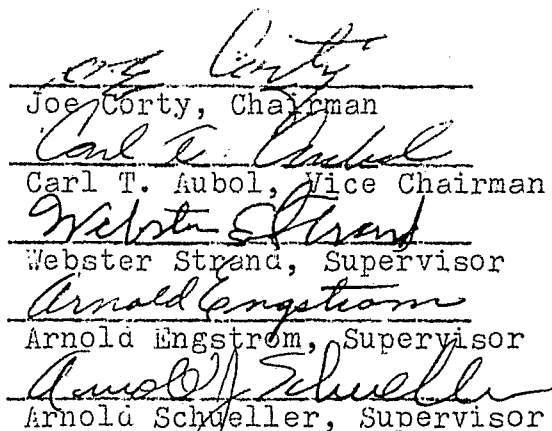 Joe Corty
Joe Corty, Chairman
Carl T. Aubol
Carl T. Aubol, Vice Chairman
Webster E Strand
Webster Strand, Supervisor
Arnold Engstrom
Arnold Engstrom, Supervisor
Arnold J Schueller
Arnold Schueller, Supervisor